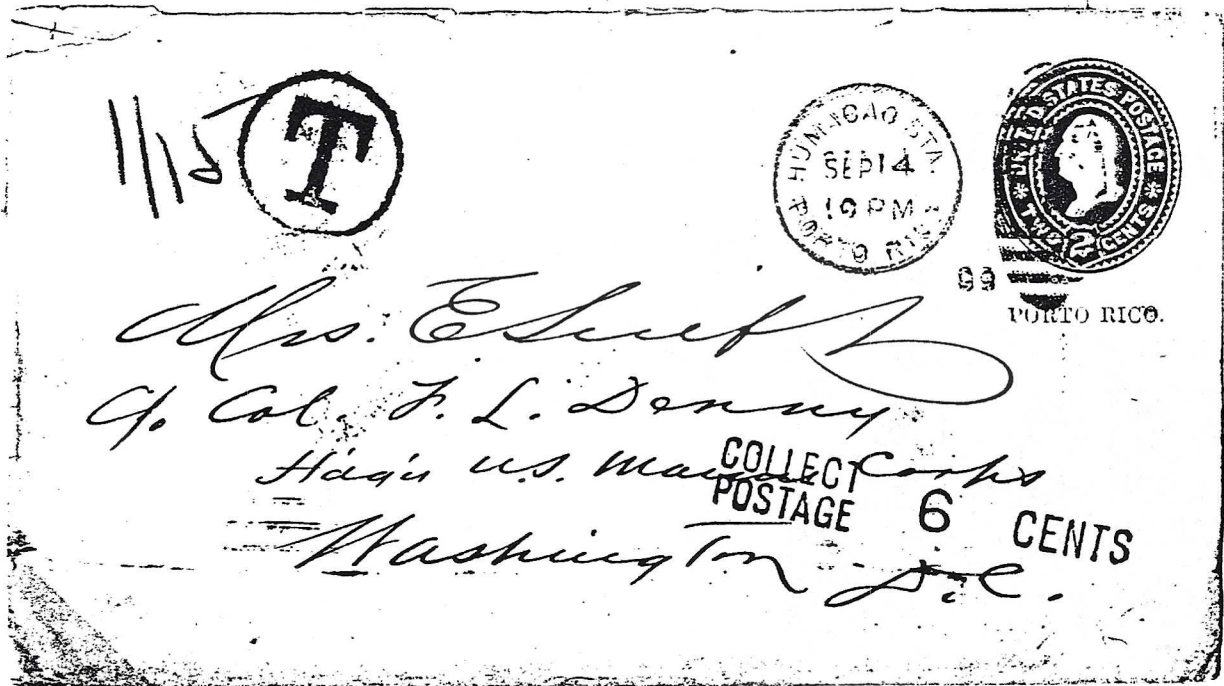 1/15 T
HUMACAO STA.
SEP 14
10 PM
PORTO RICO
99
UNITED STATES POSTAGE
TWO 2 CENTS
PORTO RICO.
Mrs. E
c/o Col. F. L. Denny
Hdqrs U.S. Marine Corps
Washington D.C.
COLLECT
POSTAGE 6 CENTS